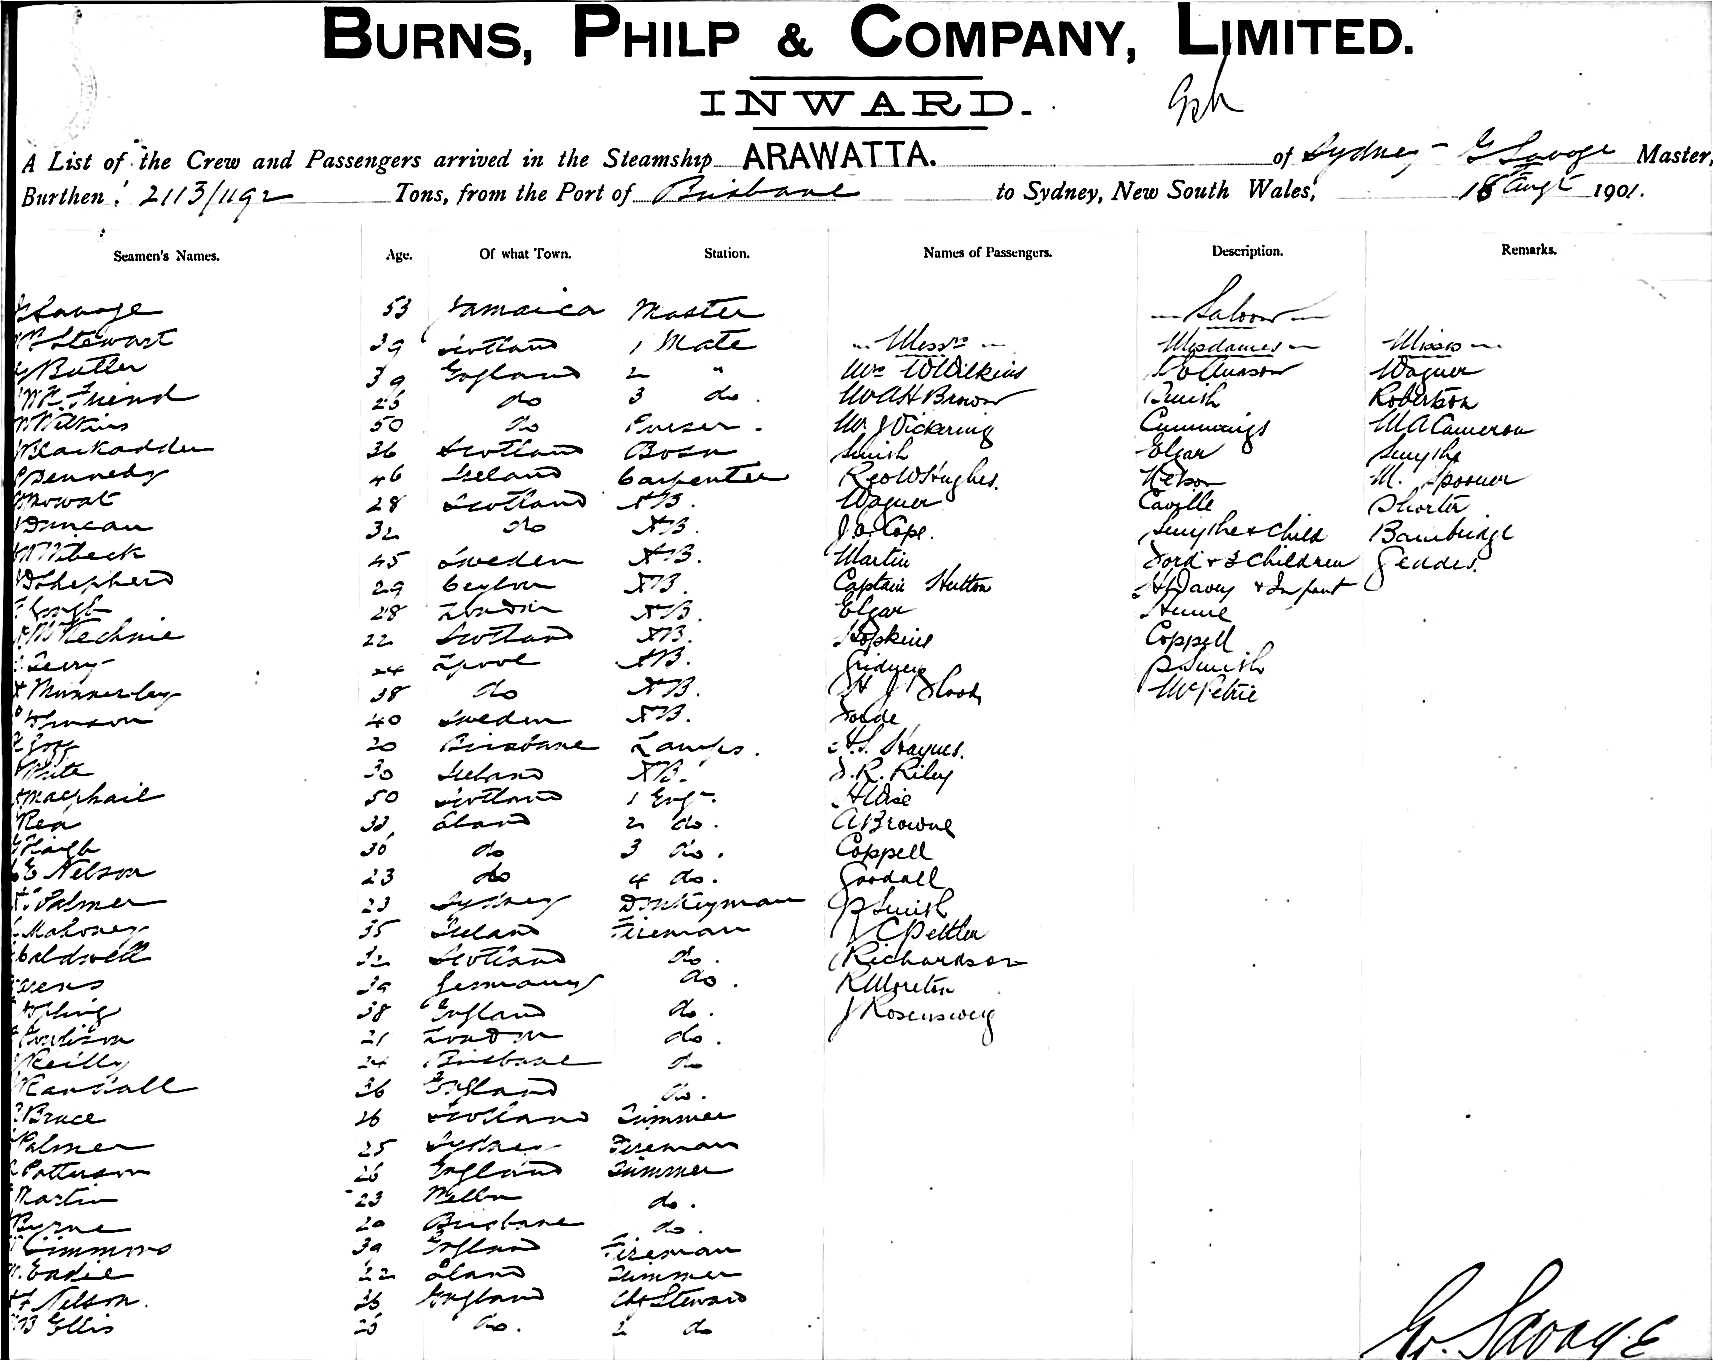 BURNS, PHILP & COMPANY, LIMITED.
INWARD.
A List of the Crew and Passengers arrived in the Steamship ARAWATTA. of Sydney - G Savage Master,
Burthen 2113/1192 Tons, from the Port of Brisbane to Sydney, New South Wales, 18 Augt 1901.
Seamen's Names. Age. Of what Town. Station. Names of Passengers. Description. Remarks.
Savage 53 Jamaica Master Saloon
Stewart 39 Scotland 1 Mate Messrs Mesdames Misses
Butler 39 England 2 " W Wilkins Wagner
Friend 25 do 3 do. A H Brown Smith Robertson
Wilkins 50 do Purser. J Pickering Cummings M A Cameron
Blackadder 36 Scotland Bosn Smith Elgar Smythe
Kennedy 46 Ireland Carpenter Rev W Hughes. Nelson M. Spooner
Mowat 28 Scotland AB. Wagner Caville Shorter
Duncan 32 do AB. Cope. Smythe & Child Bambridge
45 Sweden AB. Martin Ford & 3 Children Geddes.
Shepherd 29 Ceylon AB. Captain Hutton H Davey & Infant
28 London AB. Elgar Hume
McKechnie 22 Scotland AB. Hopkins Coppell
Terry 24 L'pool AB. P Smith
Munnerley 38 do AB. H J Flood McPetrie
Johnson 40 Sweden AB. Forde
20 Brisbane Lamps. H.S. Haynes.
White 30 Ireland AB. J.R. Riley
Macphail 50 Scotland 1 Engr. H Wise
Rea 33 do. A Browne
Haigh 36 do 3 do. Coppell
E Nelson 23 do 4 do. Goodall
Palmer 23 Sydney Donkeyman P Smith
Mahoney 35 Ireland Fireman
Caldwell 32 Scotland do. Richardson
39 Germany do. R Moreton
38 England do. J Rosensweig
21 London do.
Reilly 24 Brisbane do
Randall 36 England do.
Bruce 26 Scotland Trimmer
Palmer 25 Sydney Fireman
Patterson 26 England Trimmer
Martin 23 Melbn do.
Byrne 20 Brisbane do.
Simmons 39 England Fireman
Eadie 22 Trimmer
Nelson. 36 England Ch Steward
Ellis do. 2 do
G. Savage